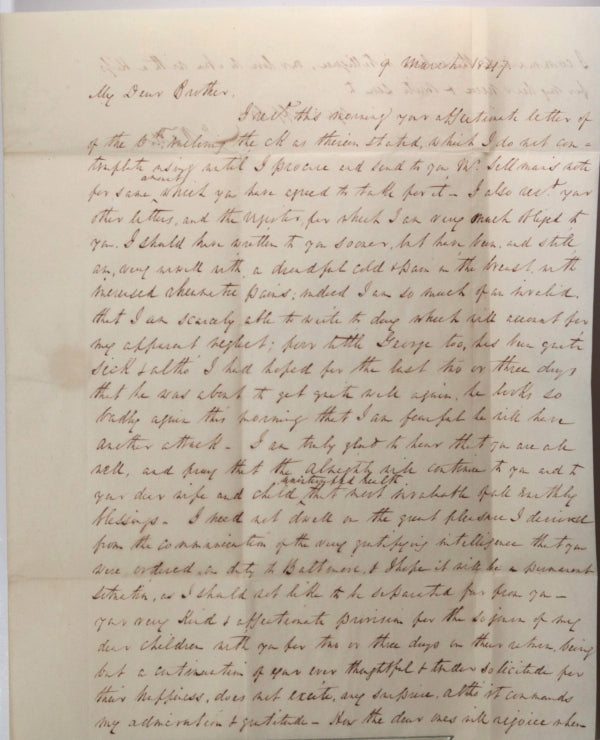 9 March 1847.
My Dear Brother.
I recd. this morning your affectionate letter of
of the 6th. enclosing the ck as therein stated, which I do not con-
template using until I procure and send to you Mr. Sellman's note
for same amount which you have agreed to take for it — I also recd. your
other letters, and the register, for which I am very much obliged to
you. I should have written to you sooner, but have been, and still
am, very unwell with a dreadful cold & pain in the breast, with
increased rheumatic pains; indeed I am so much of an invalid,
that I am scarcely able to write to day which will account for
my apparent neglect; poor little George too, has been quite
sick & altho' I had hoped for the last two or three days
that he was about to get quite well again, he looks so
badly again this morning that I am fearful he will have
another attack — I am truly glad to hear that you are all
well, and pray that the Almighty will continue to you and to
your dear wife and child uninterrupted health that most invaluable of all earthly
blessings — I need not dwell on the great pleasure I derived
from the communication of the very gratifying intelligence that you
were ordered on duty to Baltimore, & I hope it will be a permanent
situation, as I should not like to be separated far from you —
your very kind & affectionate provision for the sojourn of my
dear children with you for two or three days on their return, being
but a continuation of your ever thoughtful & tender solicitude for
their happiness, does not excite, any surprise, altho it commands
my admiration & gratitude — How the dear ones will rejoice when